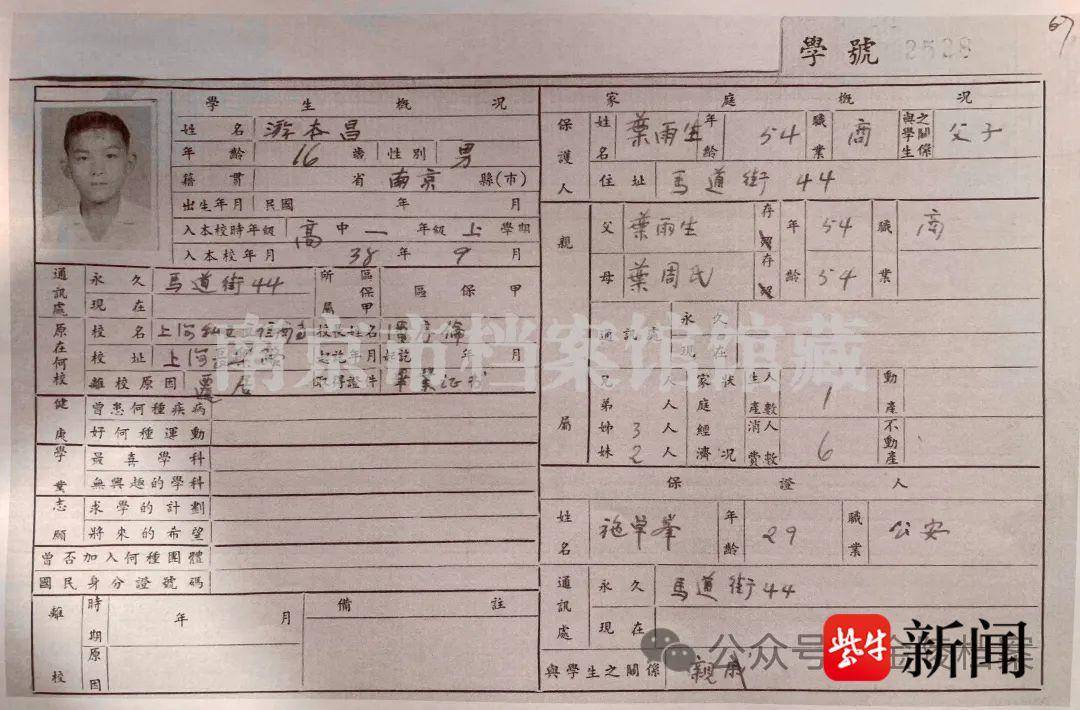 67
學號 2528
學生概況
姓名 游本昌
年齡 16 歲 性別 男
籍貫 省 南京 縣(市)
出生年月 民國 年 月
入本校時年級 高中一年級上學期
入本校年月 38年9月
通訊處 永久 馬道街44 所屬區保甲 區保甲
現在
原在何校 校名 上海 校長姓名
校址 上海 起訖年月 起訖 年 月
離校原因 遷居 取得證件 畢業证书
健康 曾患何種疾病
好何種運動
學業 最喜學科
無興趣的學科
志願 求學的計劃
將來的希望
曾否加入何種團體
國民身分證號碼
離校 時期 年 月 備註
原因
家庭概況
保護人 姓名 葉雨生 年齡 54 職業 商 與學生之關係 父子
住址 馬道街 44
親屬 父 葉雨生 存 年齡 54 職業 商
母 葉周氏 存 54
通訊處 永久
現在
兄 人 家庭經濟狀況 生產人數 1 動產
弟 人
姊 3 人 消費人數 6 不動產
妹 2 人
保證人
姓名 施學峯 年齡 29 職業 公安
通訊處 永久 馬道街44
現在
與學生之關係 親戚
南京市档案馆馆藏
公众号·金陵档案
紫牛新闻